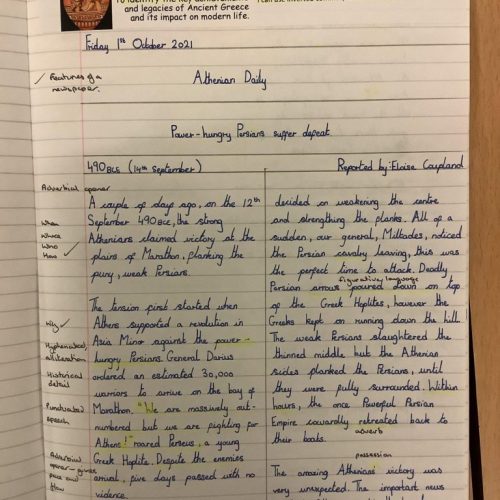 and legacies of Ancient Greece
and its impact on modern life.
Friday 1st October 2021
Features of a
newspaper.
Athenian Daily
Power-hungry Persians suffer defeat.
490 BCE (14th September)
Reported by: Eloise Coupland
Adverbial opener
When
Where
Who
How
A couple of days ago, on the 12th
September 490 BCE, the strong
Athenians claimed victory at the
plains of Marathon, flanking the
puny, weak Persians.
Why
Hyphenated
alliteration
Historical
detail
Punctuated
speech
Adverbial
opener - gives
time and
The tension first started when
Athens supported a revolution in
Asia Minor against the power-
hungry Persians. General Darius
ordered an estimated 30,000
warriors to arrive on the bay of
Marathon. "We are massively out-
numbered but we are fighting for
Athens!" roared Perseus, a young
Greek Hoplite. Despite the enemies
arrival, five days passed with no
violence.
decided on weakening the centre
and strengthing the planks. All of a
sudden, our general, Miltades, noticed
the Persian cavalry leaving, this was
the perfect time to attack. Deadly
figurative language
Persian arrows poured down on top
of the Greek Hoplites, however the
Greeks kept on running down the hill.
The weak Persians slaughtered the
thinned middle but the Athenian
sides planked the Persians, until
they were fully surrounded. Within
hours, the once Powerful Persian
Empire cowardly retreated back to
their boats.
adverb
possession
The amazing Athenians' victory was
very unexpected. The important news